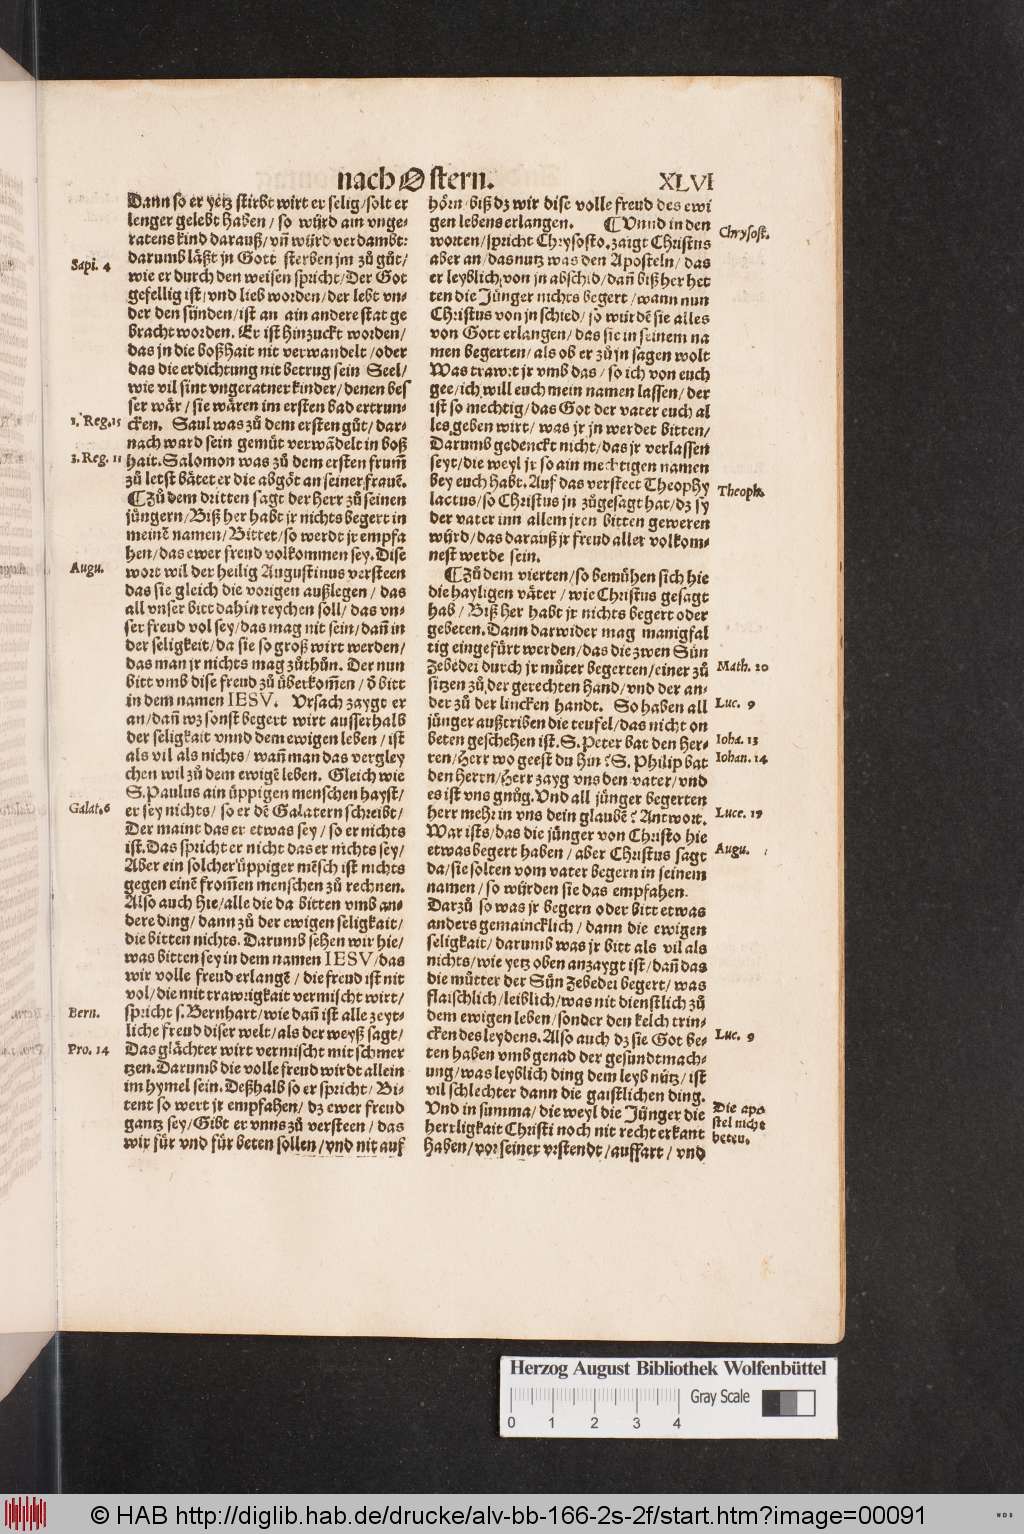 nach Ostern.
XLVI
Dann so er yetz stirbt wirt er selig/solt er
lenger gelebt haben/so würd ain vnge-
ratens kind darauß/vñ würd verdambt:
darumb läßt jn Gott sterben jm zů gůt/
wie er durch den weisen spricht/Der Got
gefellig ist/vnd lieb worden/der lebt vn-
der den sünden/ist an ain andere stat ge
bracht worden. Er ist hinzuckt worden/
das jn die boßhait nit verwandelt/oder
das die erdichtung nit betrug sein Seel/
wie vil sint vngeratner kinder/denen bes
ser wär/sie wären im ersten bad ertrun-
cken. Saul was zů dem ersten gůt/dar-
nach ward sein gemüt verwädelt in boß
hait. Salomon was zů dem ersten frum̄
zů letst bätet er die abgöt an seiner frauē.
¶Zů dem dritten sagt der Herr zů seinen
jüngern/Bißher habt jr nichts begert in
meinē namen/Bittet/so werdt jr empfa
hen/das ewer freud volkommen sey. Dise
wort wil der heilig Augustinus versteen
das sie gleich die vorigen außlegen/das
all vnser bitt dahin reychen soll/das vn-
ser freud vol sey/das mag nit sein/dañ in
der seligkeit/da sie so groß wirt werden/
das man jr nichts mag zůthůn. Der nun
bitt vmb dise freud zů überkom̄en/ð bitt
in dem namen IESV. Vrsach zaygt er
an/dañ wz sonst begert wirt ausserhalb
der seligkait vnnd dem ewigen leben/ist
als vil als nichts/wañ man das vergley
chen wil zů dem ewigē leben. Gleich wie
S. Paulus ain üppigen menschen hayst/
er sey nichts/so er dē Galatern schreibt/
Der maint das er etwas sey/so er nichts
ist. Das spricht er nicht das er nichts sey/
Aber ein solcher üppiger mēsch ist nichts
gegen einē from̄en menschen zů rechnen.
Also auch hie/alle die da bitten vmb an-
dere ding/dann zů der ewigen seligkait/
die bitten nichts. Darumb sehen wir hie/
was bitten sey in dem namen IESV/das
wir volle freud erlangē/die freud ist nit
vol/die mit trawrigkait vermischt wirt/
spricht s. Bernhart/wie dañ ist alle zeyt-
liche freud diser welt/als der weyß sagt/
Das glächter wirt vermischt mit schmer
tzen. Darumb die volle freud wirdt allein
im hymel sein. Deßhalb so er spricht/Bi-
tent so wert jr empfahen/dz ewer freud
gantz sey/Gibt er vnns zů versteen/das
wir für vnd für beten sollen/vnd nit auf
Sapi. 4
1. Reg. 15
3. Reg. 11
Augu.
Galat. 6
Bern.
Pro. 14
hörn/biß dz wir dise volle freud des ewi
gen lebens erlangen. ¶Vnnd in den
worten/spricht Chrysosto. zaigt Christus
aber an/das nutz was den Aposteln/das
er leyblich von jn abschid/dañ bißher het
ten die Jünger nichts begert/wann nun
Christus von jn schied/so würdē sie alles
von Gott erlangen/das sie in seinem na
men begerten/als ob er zů jn sagen wolt
Was trawrt jr vmb das/so ich von euch
gee/ich will euch mein namen lassen/der
ist so mechtig/das Got der vater euch al
les geben wirt/was jr jn werdet bitten/
Darumb gedenckt nicht/das jr verlassen
seyt/die weyl jr so ain mechtigen namen
bey euch habt. Auf das versteet Theophy
lactus/so Christus jn zůgesagt hat/dz sy
der vater inn allem jren bitten geweren
würd/das darauß jr freud aller volkom-
nest werde sein.
¶Zů dem vierten/so bemühen sich hie
die hayligen väter/wie Christus gesagt
hab/Bißher habt jr nichts begert oder
gebeten. Dann darwider mag manigfal
tig eingefürt werden/das die zwen Sün
Zebedei durch jr můter begerten/einer zů
sitzen zů der gerechten hand/vnd der an-
der zů der lincken handt. So haben all
jünger außtriben die teufel/das nicht on
beten geschehen ist. S. Peter bat den Her-
ren/Herr wo geest du hin? S. Philip bat
den Herrn/Herr zayg vns den vater/vnd
es ist vns gnůg. Vnd all jünger begerten
herr mehr in vns dein glaubē? Antwort.
War ists/das die jünger von Christo hie
etwas begert haben/aber Christus sagt
da/sie solten vom vater begern in seinem
namen/so würden sie das empfahen.
Darzů so was jr begern oder bitt etwas
anders gemaincklich/dann die ewigen
seligkait/darumb was jr bitt als vil als
nichts/wie yetz oben anzaygt ist/dañ das
die můtter der Sün Zebedei begert/was
flaischlich/leiblich/was nit dienstlich zů
dem ewigen leben/sonder den kelch trin-
cken des leydens. Also auch dz sie Got be-
ten haben vmb genad der gesundtmach-
ung/was leyblich ding dem leyb nütz/ist
vil schlechter dann die gaistlichen ding.
Vnd in summa/die weyl die Jünger die
herrligkait Christi noch nit recht erkant
haben/vor seiner vrstendt/auffart/vnd
Chrysost.
Theoph.
Math. 20
Luc. 9
Ioha. 13
Iohan. 14
Luce. 17
Augu.
Luc. 9
Die apo
stel nicht
beten.
Herzog August Bibliothek Wolfenbüttel
Gray Scale
0 1 2 3 4
© HAB http://diglib.hab.de/drucke/alv-bb-166-2s-2f/start.htm?image=00091